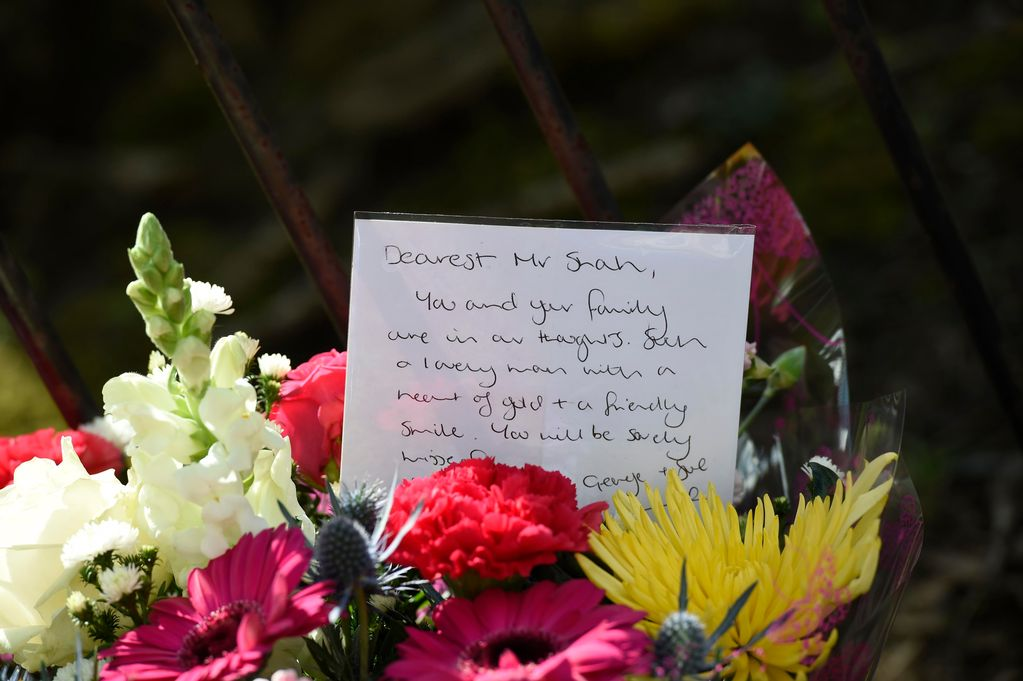 Dearest Mr Shah,
You and your family
are in our thoughts. Such
a lovely man with a
heart of gold + a friendly
smile. You will be sorely
misse
George +